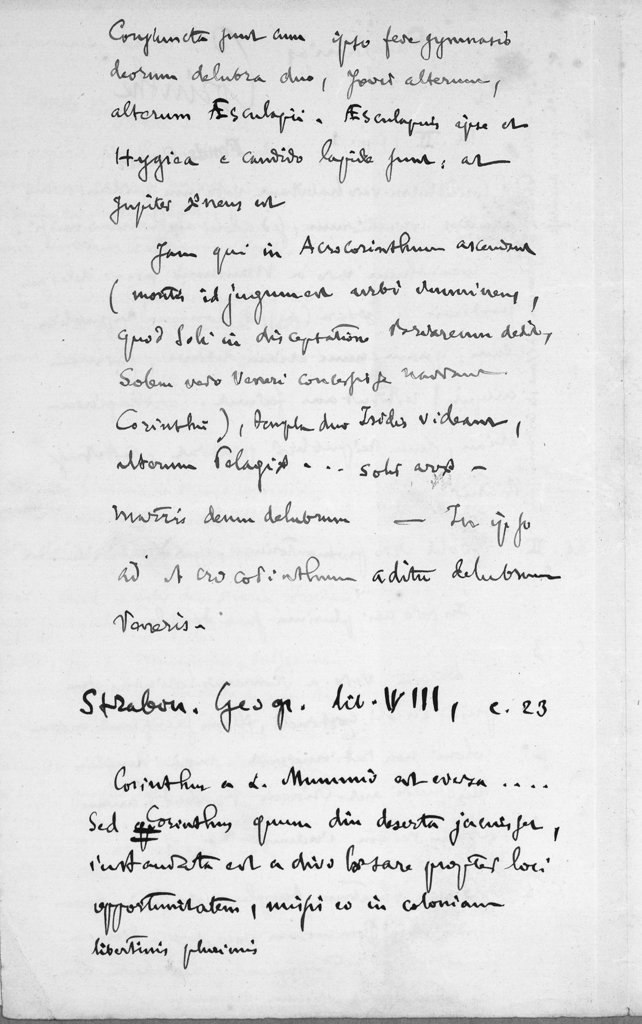 Conjuncta sunt cum ipso fere gymnasio
deorum delubra duo, Jovis alterum,
alterum Æsculapii. Æsculapius ipse et
Hygiea e candido lapide sunt, at
Jupiter æneus est
Jam qui in Acrocorinthum ascendunt
(montis id jugum est urbi imminens,
quod Soli in disceptatione Briareum dedit,
Solem vero Veneri concessisse narrant
Corinthii), templa duo Isidis videant,
alterum Pelagiæ ... solis aræ -
matris deum delubrum — In ipso
ad Acrocorinthum aditu delubrum
Veneris -
Strabon. Geogr. lib. VIII, c. 23
Corinthus a L. Mummio est eversa ....
Sed Corinthus quum diu deserta jacuisset,
instaurata est a divo Cæsare propter loci
opportunitatem, missis eo in coloniam
libertinis plurimis